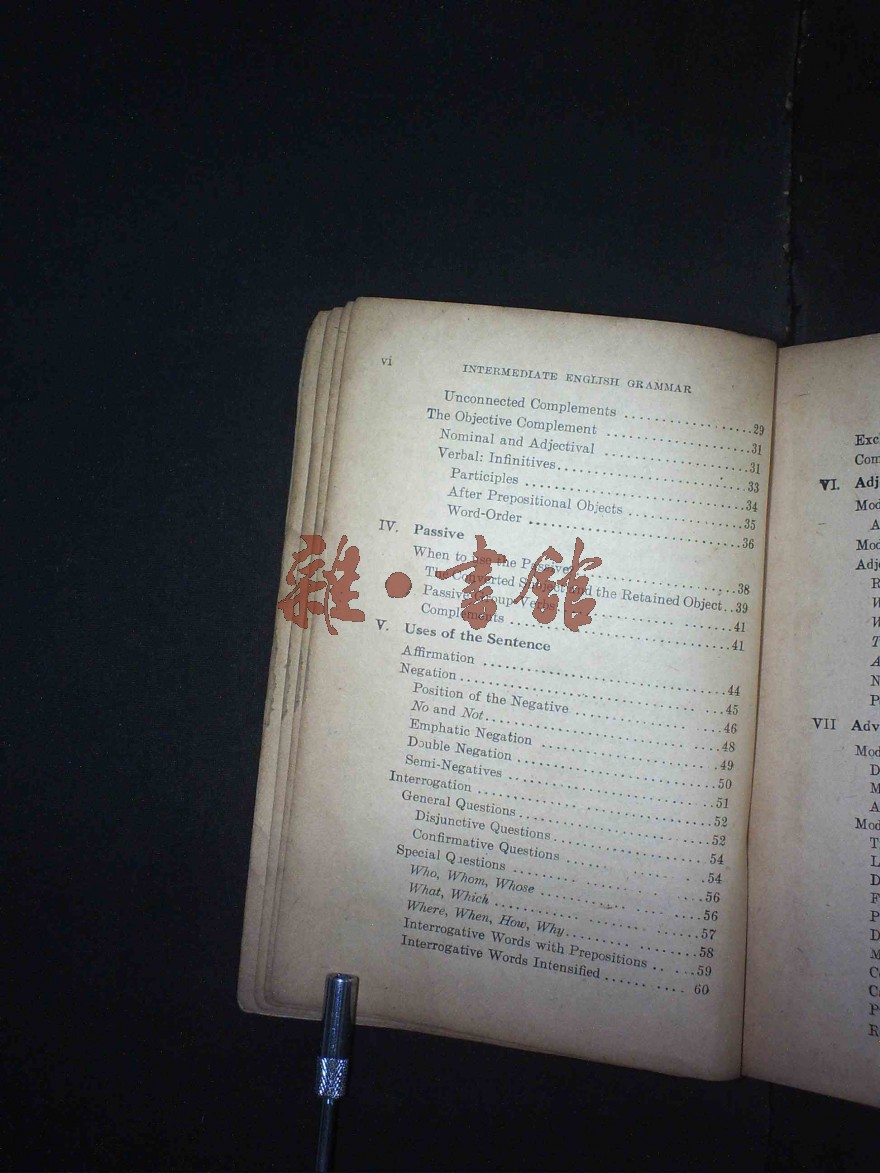 vi INTERMEDIATE ENGLISH GRAMMAR
Unconnected Complements ..................29
The Objective Complement ..................31
Nominal and Adjectival ..................31
Verbal: Infinitives..................33
Participles ..................34
After Prepositional Objects ..................35
Word-Order ..................36
IV. Passive
When to Use the Passive ..................38
The Converted Subject and the Retained Object..39
Passive Group Verbs ..................41
Complements ..................41
V. Uses of the Sentence
Affirmation ..................44
Negation ..................45
Position of the Negative ..................46
No and Not..................48
Emphatic Negation ..................49
Double Negation ..................50
Semi-Negatives ..................51
Interrogation ..................52
General Questions ..................52
Disjunctive Questions ..................54
Confirmative Questions ..................54
Special Questions ..................56
Who, Whom, Whose ..................56
What, Which ..................57
Where, When, How, Why ..................58
Interrogative Words with Prepositions .. ...59
Interrogative Words Intensified .......... 60
雜·書館
Exc
Com
VI. Adj
Mod
A
Mod
Adj
R
W
W
T
A
N
P
VII Adv
Mod
D
M
A
Mod
T
L
D
F
P
D
M
Co
Ca
P
R